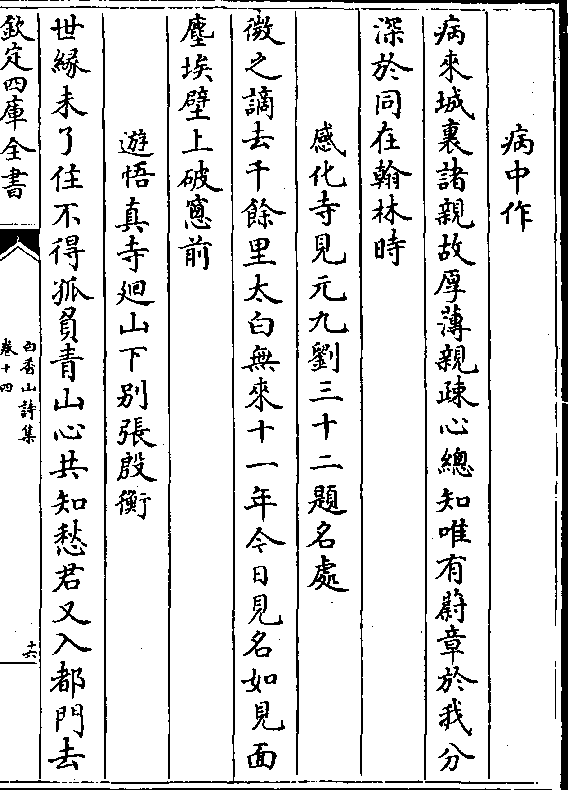 病中作
病來城裏諸親故厚薄親疎心總知唯有蔚章於我分
深於同在翰林時
感化寺見元九劉三十二題名處
微之謫去千餘里太白無來十一年今日見名如見面
塵埃壁上破窻前
遊悟真寺廻山下别張殷衡
世縁未了住不得孤負青山心共知愁君又入都門去
欽定四庫全書
白香山詩集
卷十四
十六